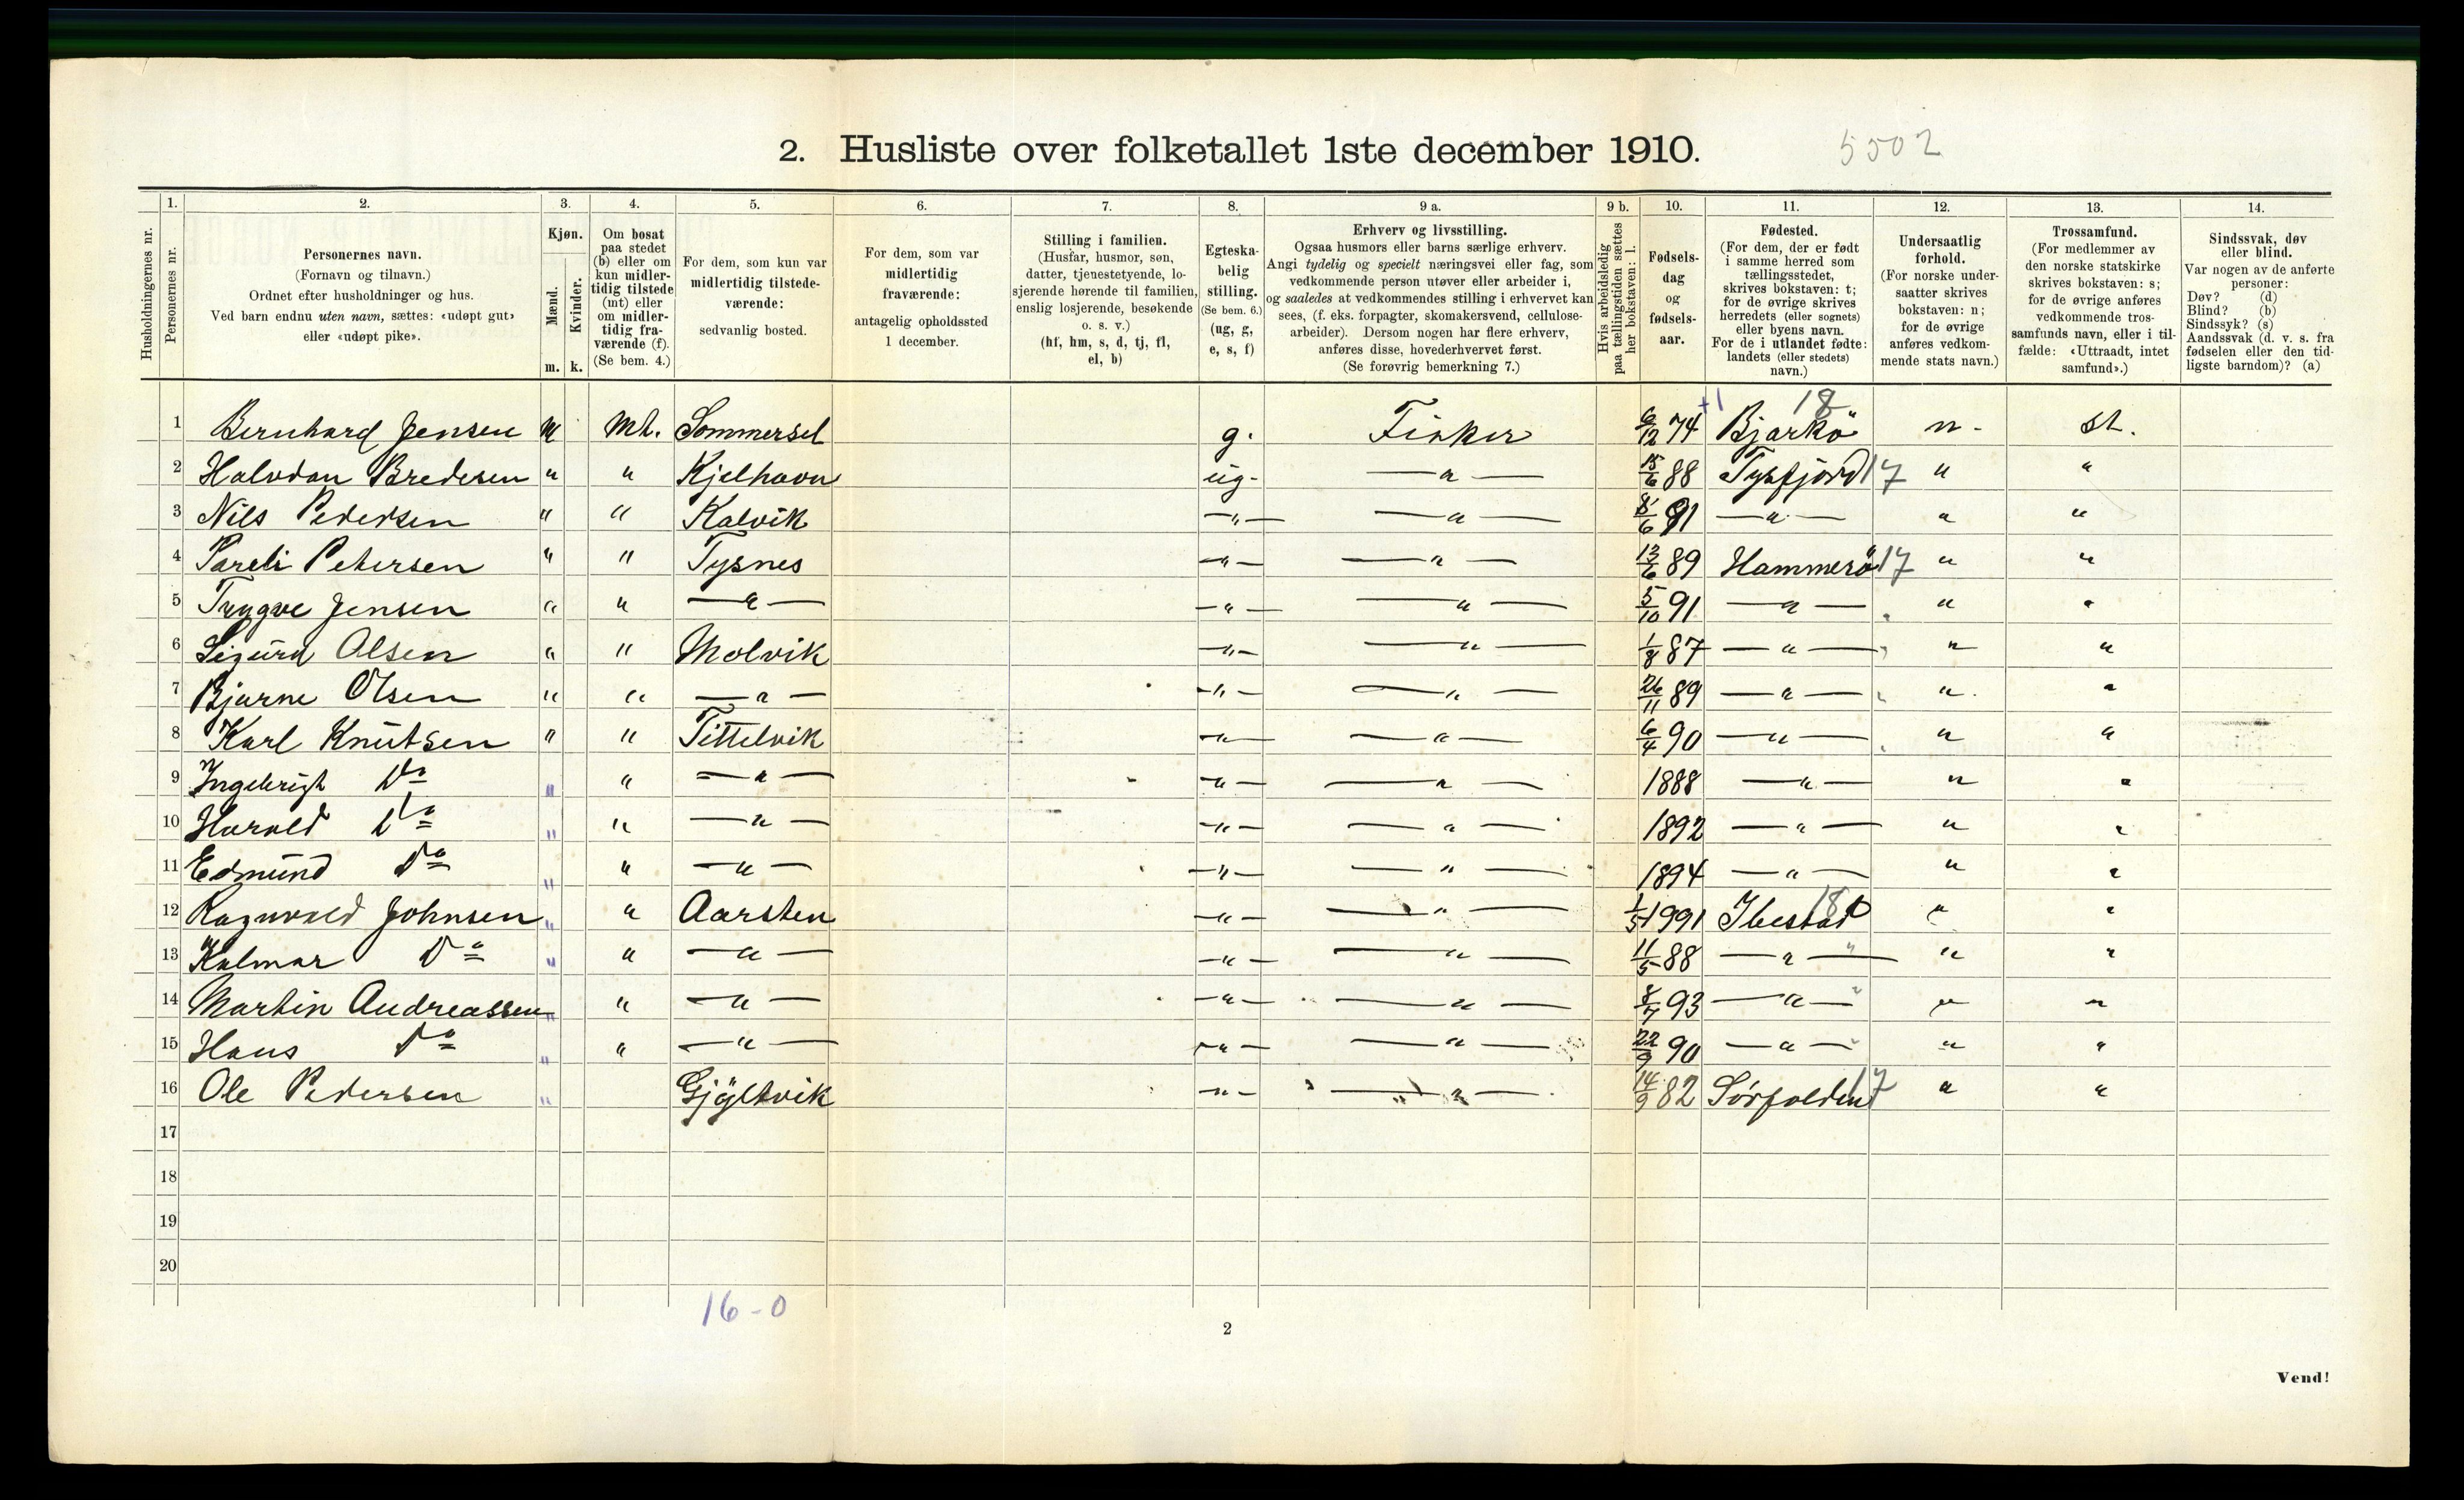 2. Husliste over folketallet 1ste december 1910. 5502
Husholdningernes nr.
1. Personernes nr.
2. Personernes navn. (Fornavn og tilnavn.) Ordnet efter husholdninger og hus. Ved barn endnu uten navn, sættes: «udøpt gut» eller «udøpt pike».
3. Kjøn. Mænd. Kvinder. m. k.
4. Om bosat paa stedet (b) eller om kun midlertidig tilstede (mt) eller om midlertidig fraværende (f). (Se bem. 4.)
5. For dem, som kun var midlertidig tilstedeværende: sedvanlig bosted.
6. For dem, som var midlertidig fraværende: antagelig opholdssted 1 december.
7. Stilling i familien. (Husfar, husmor, søn, datter, tjenestetyende, losjerende hørende til familien, enslig losjerende, besøkende o. s. v.) (hf, hm, s, d, tj, fl, el, b)
8. Egteskabelig stilling. (Se bem. 6.) (ug, g, e, s, f)
9 a. Erhverv og livsstilling. Ogsaa husmors eller barns særlige erhverv. Angi tydelig og specielt næringsvei eller fag, som vedkommende person utøver eller arbeider i, og saaledes at vedkommendes stilling i erhvervet kan sees, (f. eks. forpagter, skomakersvend, cellulosearbeider). Dersom nogen har flere erhverv, anføres disse, hovederhvervet først. (Se forøvrig bemerkning 7.)
9 b. Hvis arbeidsledig paa tællingstiden sættes her bokstaven: l.
10. Fødselsdag og fødselsaar.
11. Fødested. (For dem, der er født i samme herred som tællingsstedet, skrives bokstaven: t; for de øvrige skrives herredets (eller sognets) eller byens navn. For de i utlandet fødte: landets (eller stedets) navn.)
12. Undersaatlig forhold. (For norske undersaatter skrives bokstaven: n; for de øvrige anføres vedkommende stats navn.)
13. Trossamfund. (For medlemmer av den norske statskirke skrives bokstaven: s; for de øvrige anføres vedkommende trossamfunds navn, eller i tilfælde: «Uttraadt, intet samfund».)
14. Sindssvak, døv eller blind. Var nogen av de anførte personer: Døv? (d) Blind? (b) Sindssyk? (s) Aandssvak (d. v. s. fra fødselen eller den tidligste barndom)? (a)
1 Bernhard Jensen M Mt. Sommersel g. Fisker 6/12 74 +1 Bjarkö 18 n. st.
2 Halvdan Bredesen " " Kjelhavn ug. — " — 15/6 88 Tysfjord 17 " "
3 Nils Pedersen " " Kalvik — " — — " — 8/6 91 — " — " "
4 Pareli Petersen " " Tysnes — " — — " — 13/6 89 Hammerö 17 " "
5 Trygve Jensen " " — " — — " — — " — 5/10 91 — " — " "
6 Sigurd Olsen " " Molvik — " — — " — 1/8 87 — " — " "
7 Bjarne Olsen " " — " — — " — — " — 26/11 89 — " — " "
8 Karl Knutsen " " Tittelvik — " — — " — 6/4 90 — " — " "
9 Ingebrigt Do " " — " — — " — — " — 1888 — " — " "
10 Harald Do " " — " — — " — — " — 1892 — " — " "
11 Edmund Do " " — " — — " — — " — 1894 — " — " "
12 Ragnvald Johnsen " " Aarsten — " — — " — 1/5 1991 Ibestad 18 " "
13 Kalmar Do " " — " — — " — — " — 11/5 88 — " — " "
14 Martin Andreassen " " — " — — " — — " — 8/7 93 — " — " "
15 Hans Do " " — " — — " — — " — 22/9 90 — " — " "
16 Ole Pedersen " Gjyltvik — " — — " — 14/9 82 Sørfolden 17 " "
17
18
19
20
16 - 0
2
Vend!